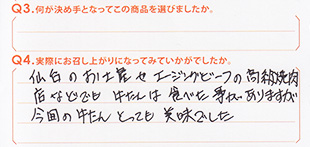 Q3.何が決め手となってこの商品を選びましたか。
Q4.実際にお召し上がりになってみていかがでしたか。
仙台のお土産やエージングビーフの高級焼肉
店などでも 牛たんは 食べた事が ありますが
今回の牛たん とっても 美味でした